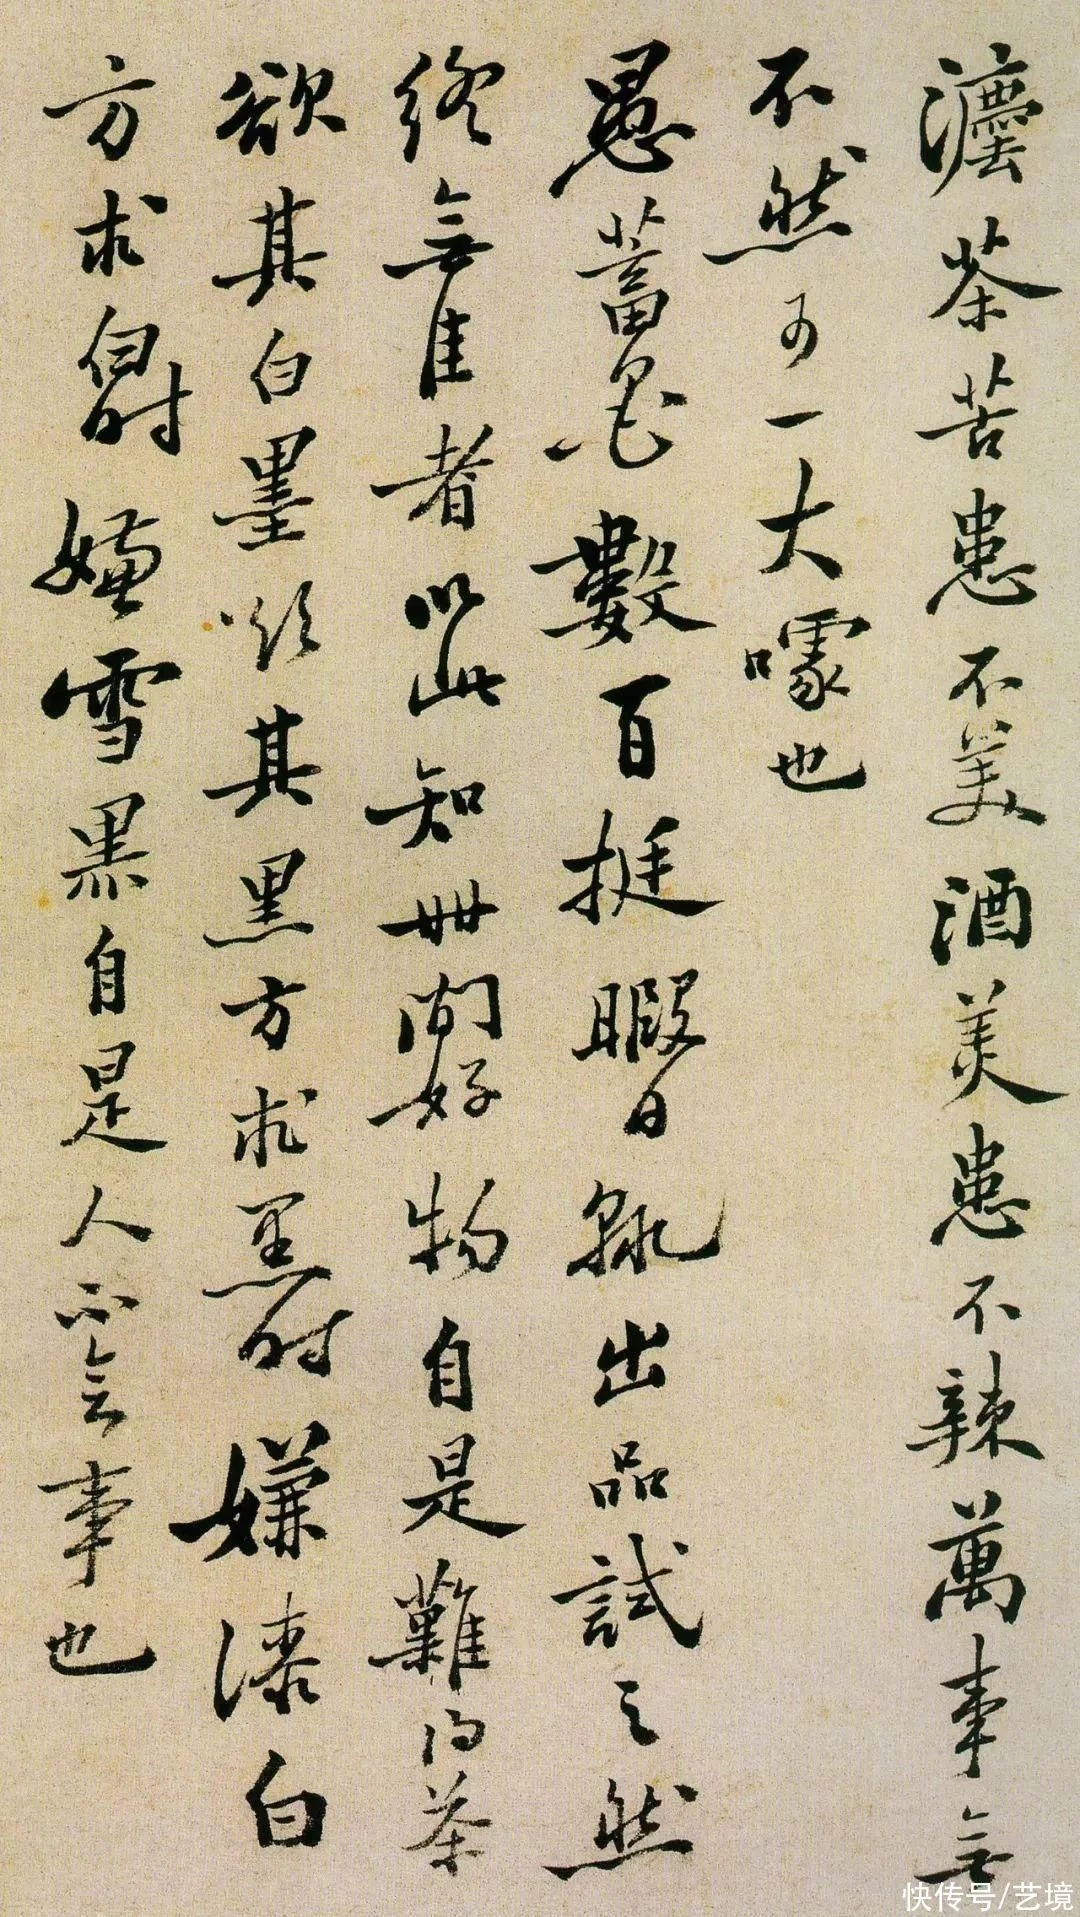 茶苦患不美酒美患不辣萬事無
不然可一大噱也
愚蓄墨數百挺暇日輒出品試之然
終無佳者以此知世間好物自是難得茶
欲其白墨欲其黑方求黑時嫌漆白
方求白時嫌雪黑自是人不會事也
快传号/艺境